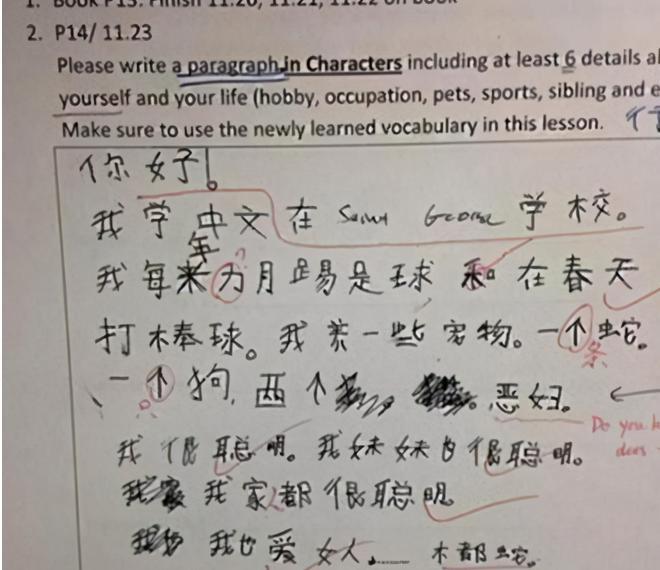 1. Book P13: Finish 11.20, 11.21, 11.22 on book
2. P14/ 11.23
Please write a paragraph in Characters including at least 6 details
yourself and your life (hobby, occupation, pets, sports, sibling and
Make sure to use the newly learned vocabulary in this lesson.
你好!
我学中文在 Saint George 学校。
年
我每 月踢足球和在春天
打棒球。我养一些宠物。一个蛇。
条
一个狗, 两个
Do you
does
我很聪明。我妹妹也很聪明。
我家都很聪明
我也爱女人